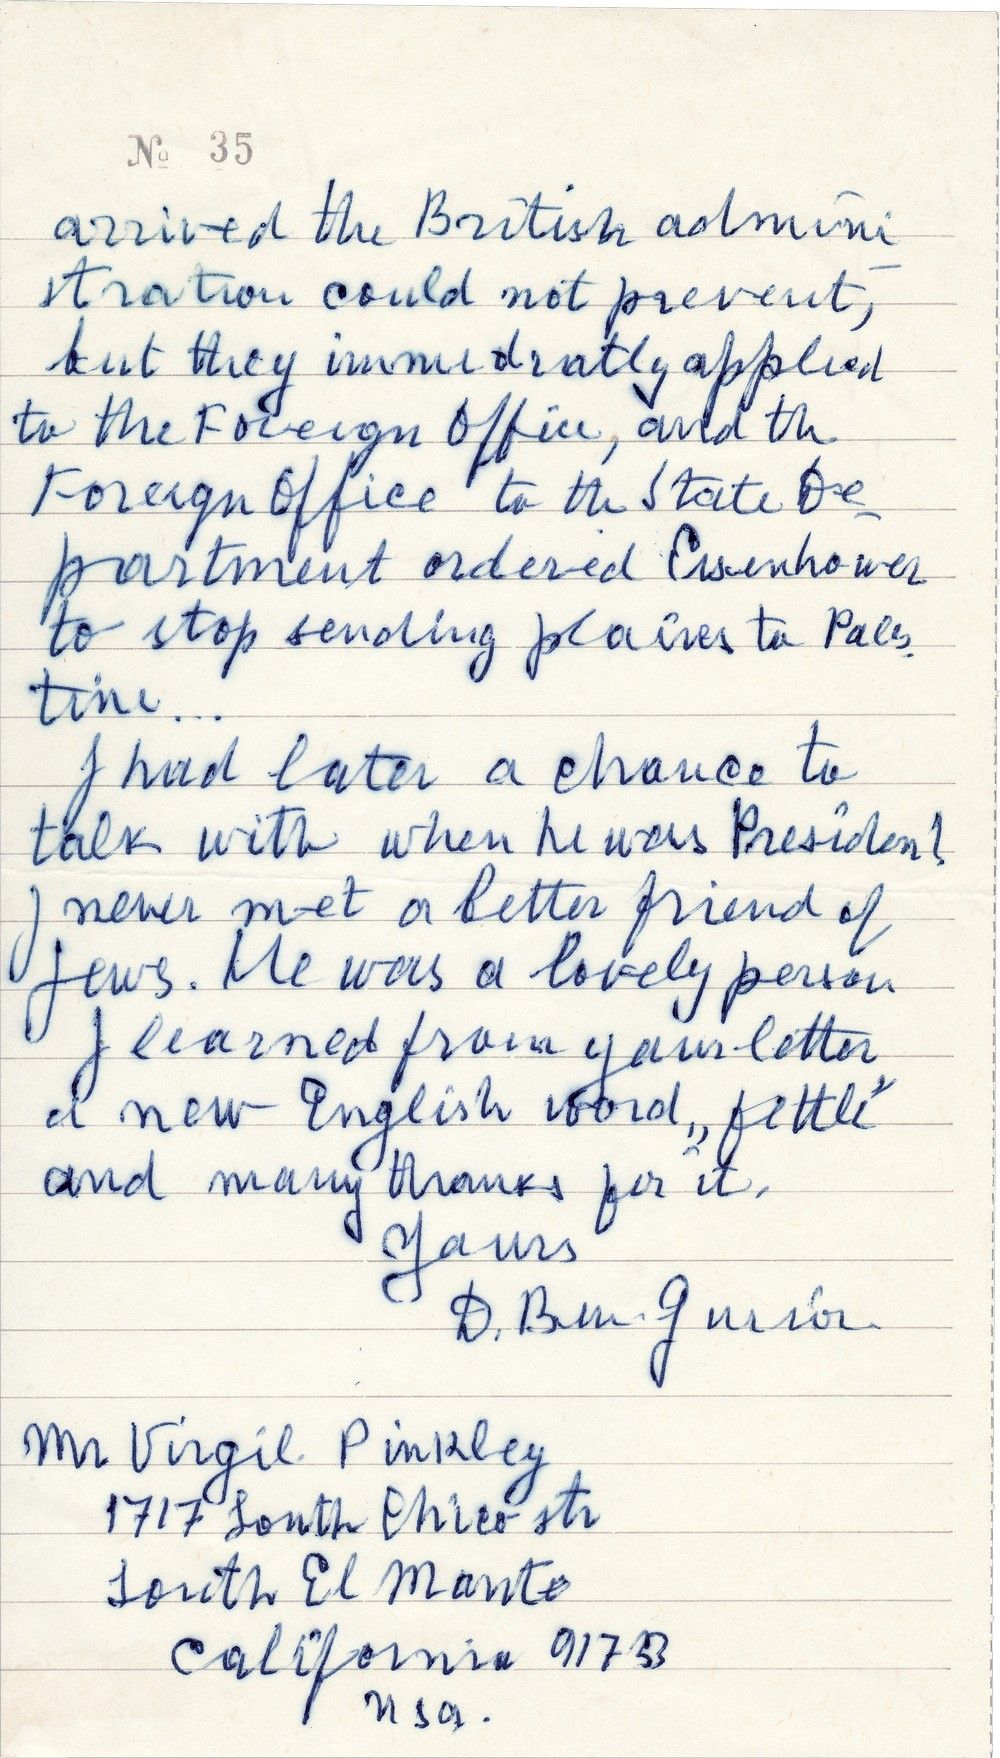 № 35
arrived the British admini
stration could not prevent,
but they immediatly applied
to the Foreign Office, and the
Foreign Office to the State De
partment ordered Eisenhower
to stop sending plaines to Pales
tine...
I had later a chance to
talk with when he was President
I never met a better friend of
Jews. He was a lovely person
I learned from your letter
a new English word „fettle"
and many thanks for it.
Yours
D. Ben-Gurion
Mr Virgil Pinkley
1717 South Chico str
South El Monte
California 91733
Usa.